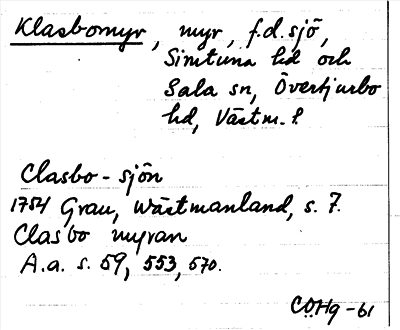 Klasbomyr, myr, f.d. sjö,
Simtuna hd och
Sala sn, Övertjurbo
hd, Västm. l.
Clasbo-sjön
1754 Grau, Wästmanland, s. 7.
Clasbo myran
A.a. s. 59, 553, 570.
COHg-61